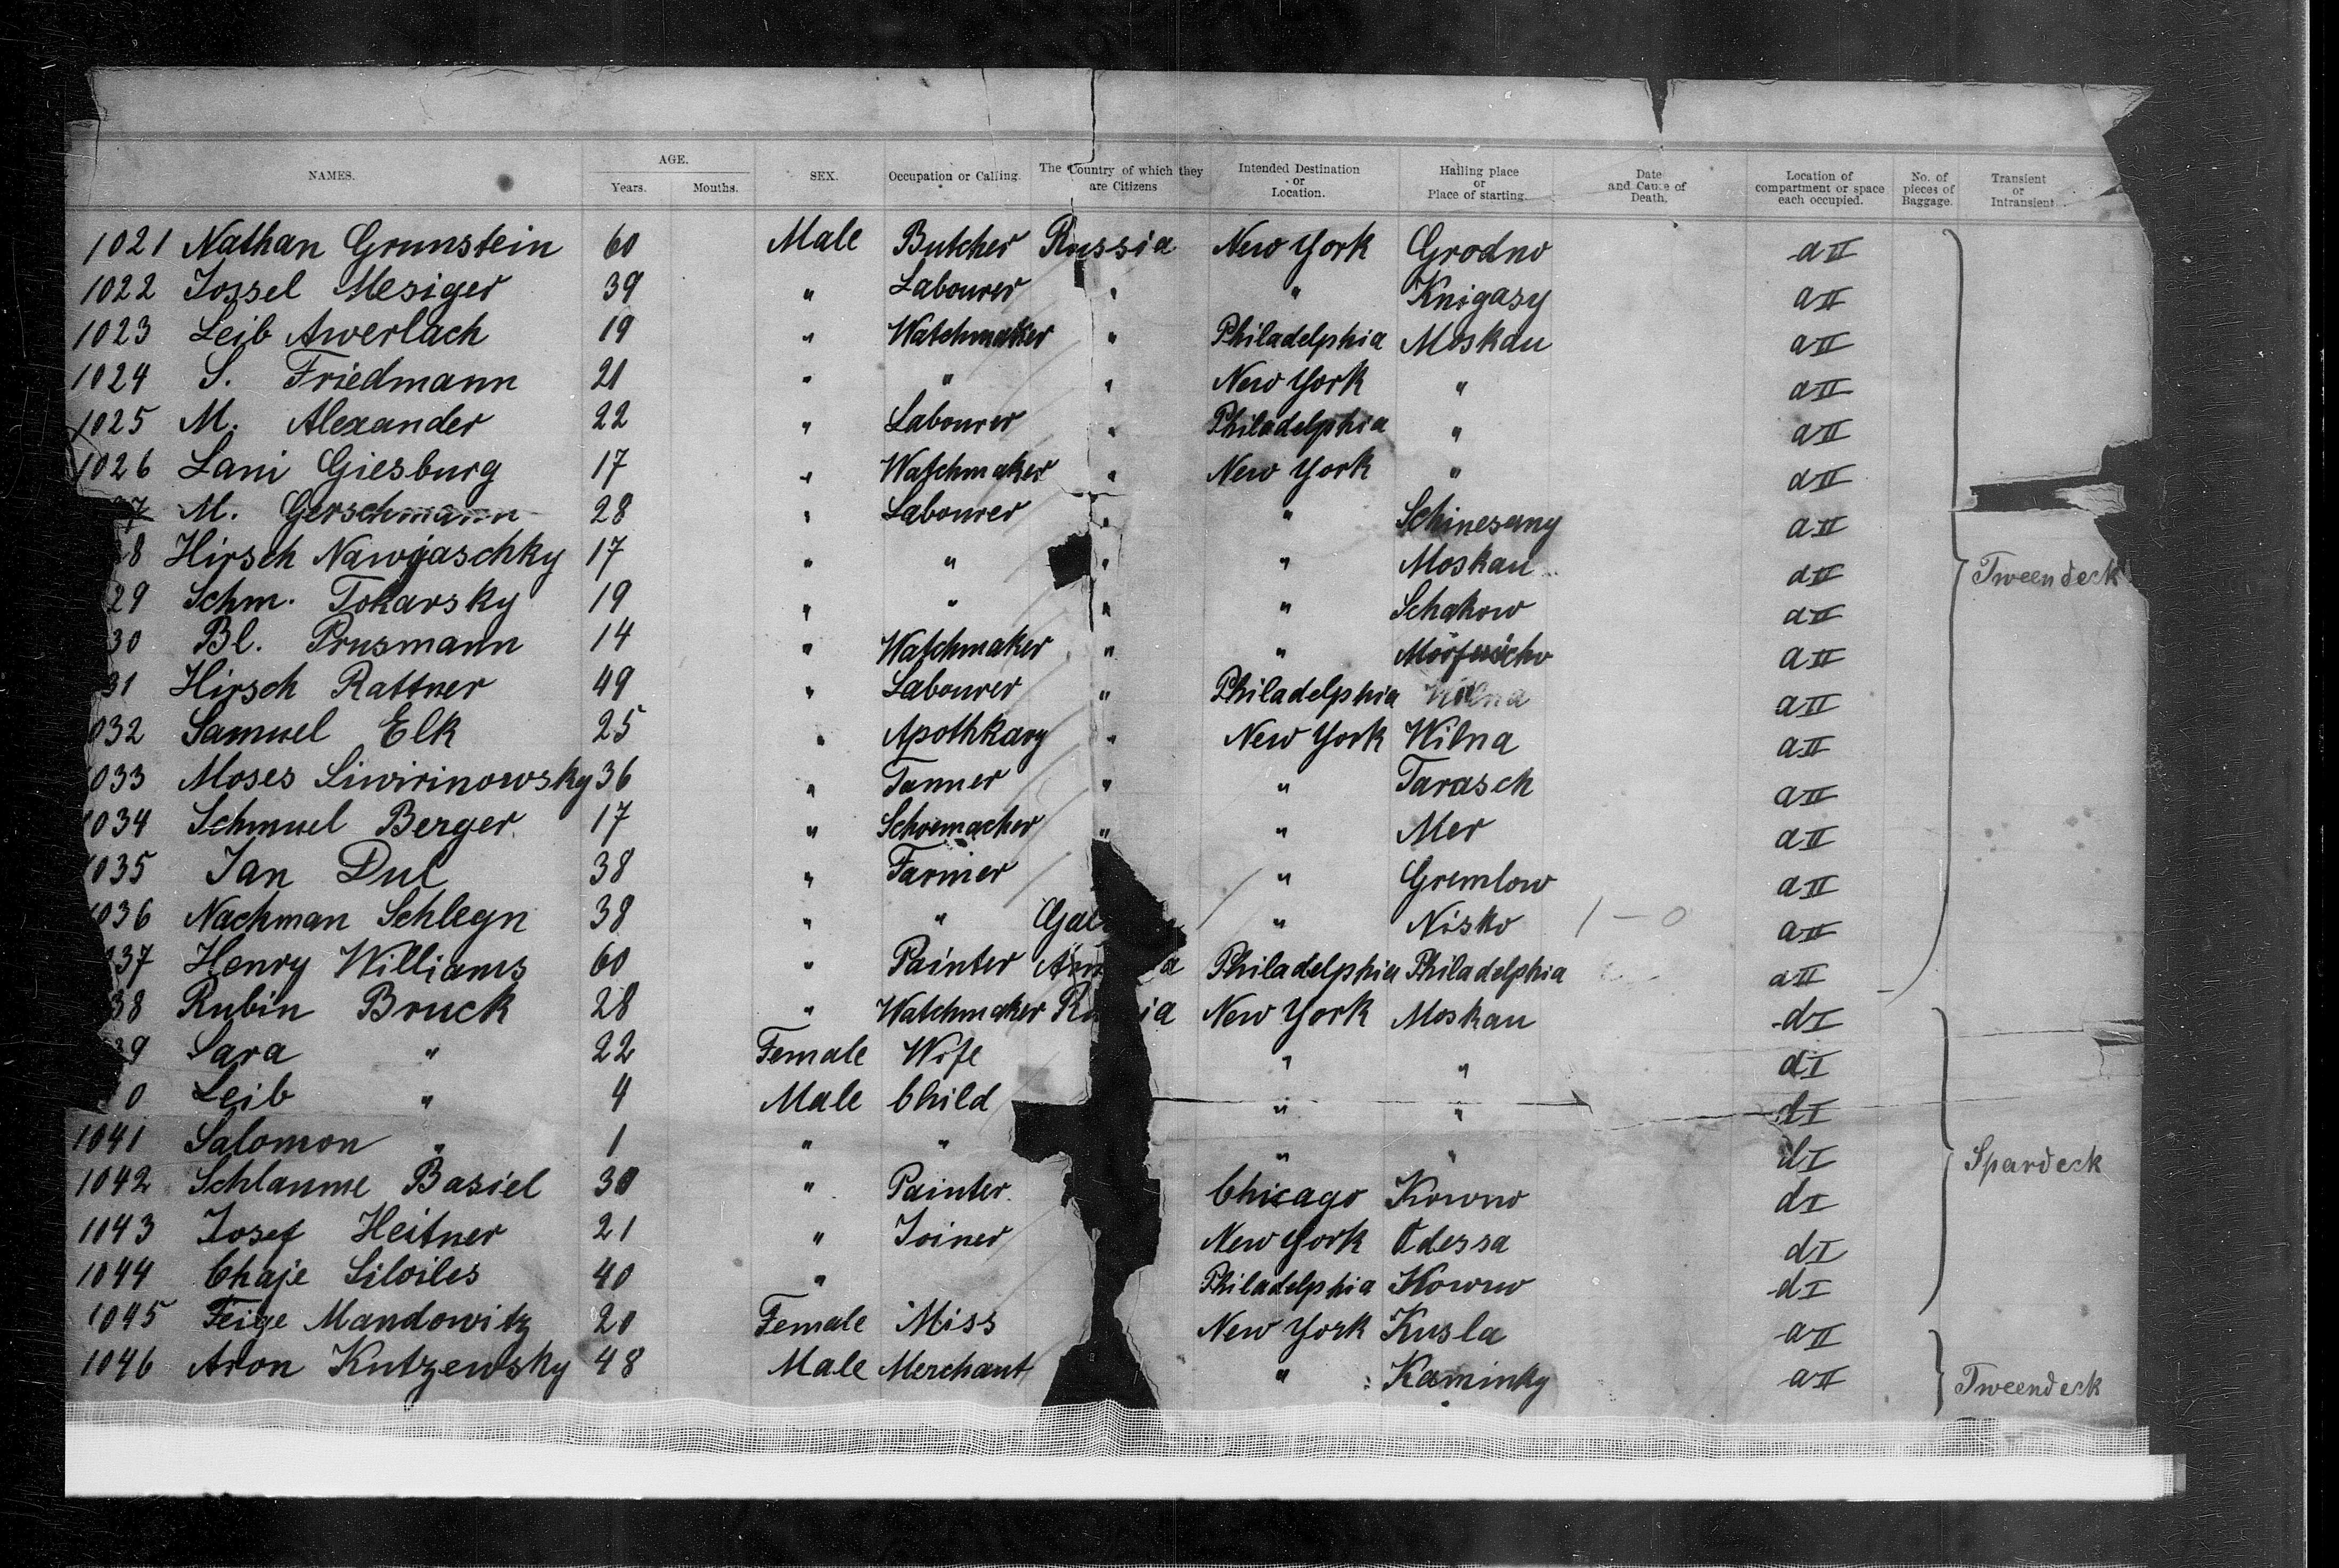 NAMES. AGE. Years. Months. SEX. Occupation or Calling. The Country of which they are Citizens Intended Destination or Location. Hailing place or Place of starting. Date and Cause of Death. Location of compartment or space each occupied. No. of pieces of Baggage. Transient or Intransient
1021 Nathan Grunstein 60 Male Butcher Russia New York Grodno a II
1022 Jossel Mesiger 39 " Labourer " " Knigasy a II
1023 Leib Awerlach 19 " Watchmaker " Philadelphia Moskau a II
1024 S. Friedmann 21 " " " New York " a II
1025 M. Alexander 22 " Labourer " Philadelphia " a II
1026 Lani Giesburg 17 " Watchmaker " New York " a II
27 M. Gerschmann 28 " Labourer " " a II
28 Hirsch Nawojaschky 17 " " " " Moskau a II Tweendeck
29 Schm. Tokarsky 19 " " " " Schakow a II
30 Bl. Prusmann 14 " Watchmaker " " a II
31 Hirsch Rattner 49 " Labourer " Philadelphia Wilna a II
032 Samuel Elk 25 " Apothkary " New York Wilna a II
033 Moses Siwirinowsky 36 " Tanner " " Tarasch a II
1034 Schmuel Berger 17 " Schoemacher " " Mer a II
1035 Jan Dul 38 " Farmer " Gremlow a II
1036 Nachman Schlegn 38 " " Gal " Nisko 1 - 0 a II
037 Henry Williams 60 " Painter Am a Philadelphia Philadelphia a II
38 Rubin Bruck 28 " Watchmaker Ru ia New York Moskau d I
39 Sara " 22 Female Wife " " d I
0 Leib " 4 Male Child " " d I
1041 Salomon " 1 " " " " d I
1042 Schlaume Basiel 30 " Painter Chicago Kowno d I Spardeck
1043 Josef Heitner 21 " Joiner New York Odessa d I
1044 Chaje Siloiles 40 " Philadelphia Kowno d I
1045 Feige Mandowitz 20 Female Miss New York Kusla a II
1046 Aron Kutzewsky 48 Male Merchant " Kaminky a II Tweendeck